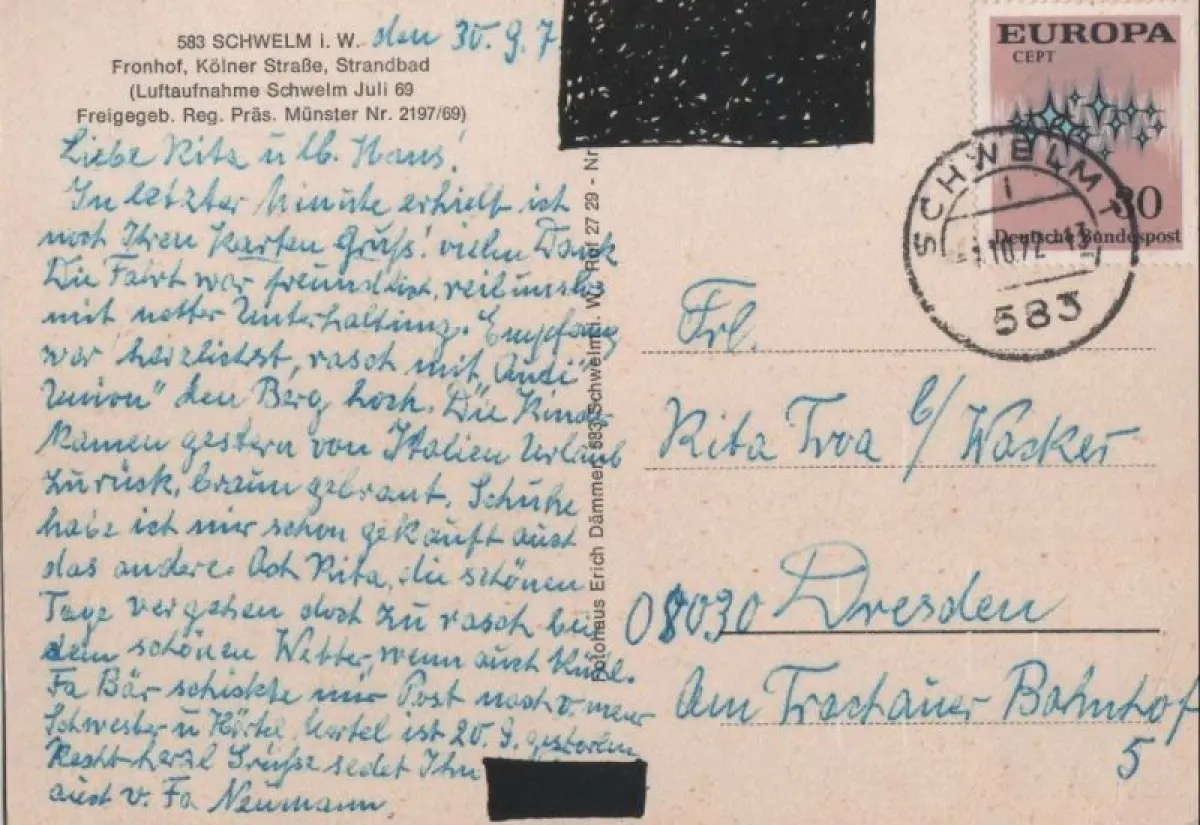 583 SCHWELM i. W. den 30. 9. 7
Fronhof, Kölner Straße, Strandbad
(Luftaufnahme Schwelm Juli 69
Freigegeb. Reg. Präs. Münster Nr. 2197/69)
Liebe Rita u lb. Hans!
In letzter Minute erhielt ich
noch Ihren Karten Gruß! vielen Dank
Die Fahrt war freundlich,
mit netter Unterhaltung. Empfang
war herzlichst, rasch mit „Audi
Union" den Berg hoch. Die Kinder
kamen gestern von Italien Urlaub
zurück, braun gebrant. Schuhe
habe ich mir schon gekauft auch
das andere. Ach Rita, die schönen
Tage vergehen doch zu rasch bei
dem schönen Wetter, wenn auch kühl.
Fa Bär schickte mir Post nach v. meiner
Schwester u Härtel, Hertel ist 20. 9. gestorben
Recht herzl Grüße sedet Ihn
auch v. Fa Neumann.
Fotohaus Erich Dämmer, 583 Schwelm i. W., Ruf 27 29 - Nr
EUROPA
CEPT
30
Deutsche Bundespost
SCHWELM 1
1.10.72
583
Frl.
Rita Troa b/ Wacker
08030 Dresden
Am Trachauer Bahnhof
5